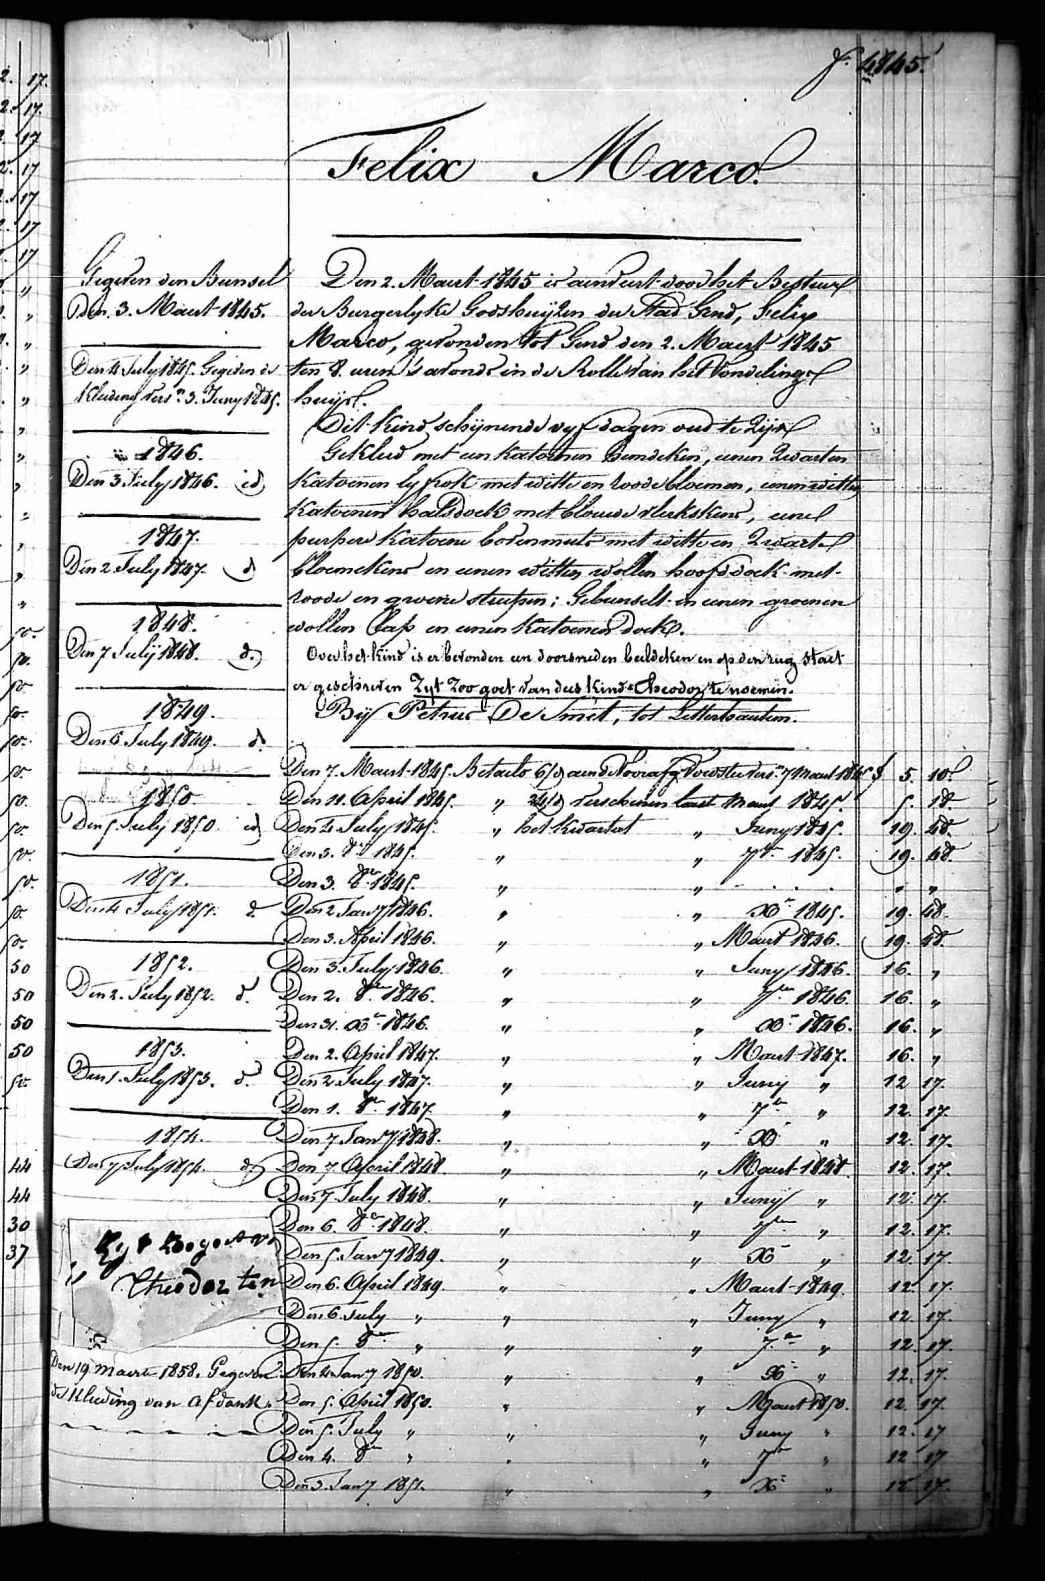 f. 4845.
Felix Marco.
Gegeven den Bunsel
Den 3. Maert 1845.
Den 4 July 1845. Gegeven de
Kleeding vers.n 3. Juny 1845.
1846.
Den 3 July 1846. id
1847.
Den 2 July 1847. d
1848.
Den 7 July 1848. d.
1849.
Den 6 July 1849. d.
1850.
Den 5 July 1850. id
1851.
Den 4 July 1851. d.
1852.
Den 2. July 1852. d.
1853.
Den 1. July 1853. d.
1854.
Den 7 July 1854. d
Zyt Zoo goet va
Theodor ten
Den 19 maert 1858. Gegeven
de Kleeding van afdank.
Den 2. Maert 1845 is aenveert door het Bestuur
der Burgerlyke Godshuijzen der Stad Gend, Felix
Marco, gevonden tot Gend den 2. Maert 1845
ten 8. uren 's avonds in de Rolle van het Vondeling
huijs.
Dit kind schynende vyf dagen oud te zijn
Gekleed met een katoenen hemdeken, eenen zwarten
katoenen lyfrok met witte en roode bloemen, eenen witten
katoenen halsdoek met blauwe vlekskens, eene
purpere katoene bovenmuts met witte en zwarte
bloemekens en eenen witten wollen hoofddoek met
roode en groene streepen; Gebunselt in eenen groenen
wollen lap en eenen katoenen doek.
Over het kind is er bevonden een doorsneden beeldeken en op den rug staet
er geschreven Zyt Zoo goet van dees kind Theodor te noemen.
By Petrus De Smet, tot Letterhautem.
Den 7. Maert 1845. Betaelt 6/9 aen de Voorafg. Voedster vers.n 7 Maert 1845 f 5. 10.
Den 11. April 1845. " 24/9 verschenen laest Maert 1845. 5. 18.
Den 4 July 1845. " het kwartael " Juny 1845. 19. 48.
Den 3. 8.re 1845. " " 7.re 1845. 19. 48
Den 3. 8.re 1845. " " . . . . " "
Den 2 Janry 1846. " " X.re 1845. 19. 48.
Den 3. April 1846. " " Maert 1846. 19. 48.
Den 3. July 1846. " " Juny 1846. 16. "
Den 2. 8.re 1846. " " 7.re 1846. 16. "
Den 31. X.re 1846. " " X.re 1846. 16. "
Den 2. April 1847. " " Maert 1847. 16. "
Den 2 July 1847. " " Juny " 12 17.
Den 1. 8.re 1847. " " 7.re " 12. 17.
Den 7 Janry 1848. " " X.re " 12. 17.
Den 7 April 1848. " " Maert 1848 12. 17.
Den 7 July 1848. " " Juny " 12. 17.
Den 6. 8.re 1848. " " 7.re " 12. 17.
Den 5. Janry 1849. " " X.re " 12. 17.
Den 6. April 1849. " " Maert 1849. 12. 17.
Den 6 July " " " Juny " 12. 17.
Den 5. 8.re " " " 7.re " 12. 17.
Den 4 Janry 1850. " " X.re " 12. 17.
Den 5. April 1850. " " Maert 1850. 12. 17.
Den 5. July " " " Juny " 12. 17
Den 4. 8.re " " " 7.re " 12 17
Den 3. Janry 1851. " " X.re " 12. 17.